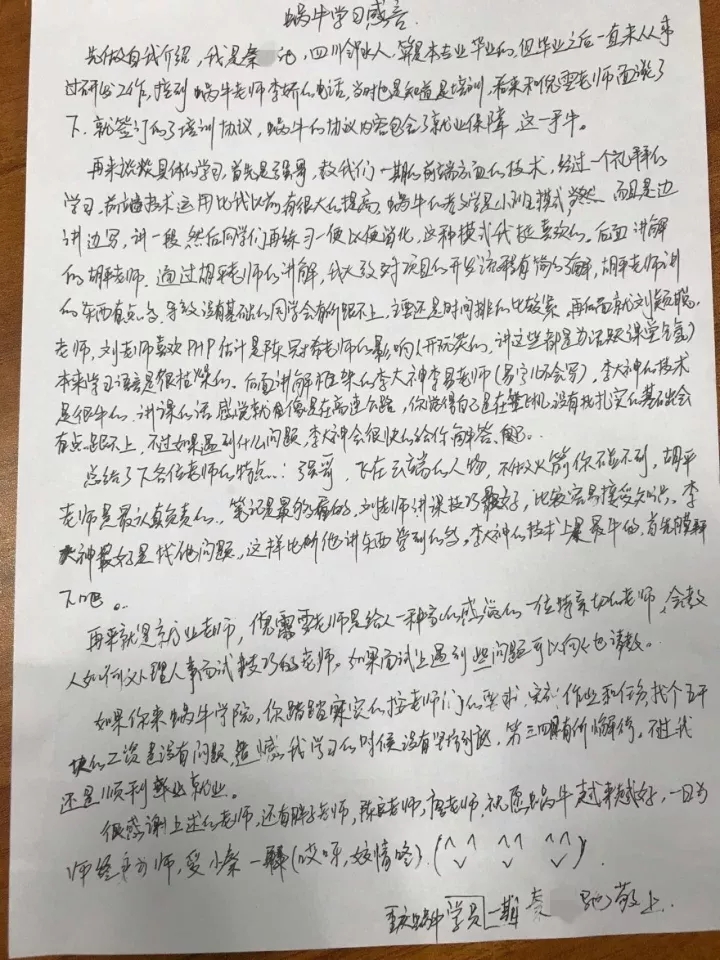 蜗牛学习感言
先做自我介绍，我是秦 ，四川邻水人，算是本专业毕业的，但毕业之后一直未从事
过研发工作，接到蜗牛老师李娇的电话，当时也是知道是培训，后来和倪雪老师面谈了
下，就签订了培训协议，蜗牛的协议内容包含了就业保障，这一手牛。
再来谈谈具体的学习，首先是强哥，教我们一期的前端方面的技术，经过一个礼拜的
学习，前端技术运用比我以前有很大的提高，蜗牛的教学是小班模式，当然，而且是边
讲边写，讲一段，然后同学们再练习一便以便消化，这种模式我挺喜欢的，后面讲解
的胡平老师，通过胡平老师的讲解，我大致对项目的开发流程有简的了解，胡平老师讲
的东西有点多，导致没有基础的同学会有所跟不上，主要还是时间排的比较紧，再后面就刘
老师，刘老师喜欢PHP估计是陈 老师的影响（开玩笑的，讲这些都是为活跃课堂气氛）
本来学习语言是很枯燥的，后面讲解框架的李大神李昌老师（ 字儿不会写），李大神的技术
是很牛的，讲课的话感觉就自像是在高速公路，你觉得自己是在坐飞机，没有扎扎实的基础会
有点跟不上，不过如果遇到什么问题，李大神会很快的给你解答
总结了下各位老师的特点：强哥，飞在云端的人物，不做火箭你碰不到，胡平
老师是最认真负责的，笔记是最够看的，刘老师讲课技巧最好，比较容易接受知识，李
大神最好是找他问题，这样比听他讲东西学到的多，李大神的技术上是最牛的，首先膜拜
下吧。
再来就是就业老师，倪雪老师是给人一种家的感觉的一位特亲切的老师，会教
人如何处理人事面试技巧的老师。如果面试上遇到些问题可以向她请教。
如果你来蜗牛学院，你踏踏实实的按老师们的要求，完成作业和任务，找个五千
块的工资是没有问题，遗憾，我学习的时候没有坚持到底，第三四阶有所懈怠，不过我
还是顺利就业。
很感谢上述的老师，还有胖子老师，陈 老师，唐老师，祝愿蜗牛越来越好，一日为
师终身为师，受小秦一拜（哎呀，矫情咯）（^ ^ ^ ^ ^ ^）
重庆蜗牛学员一期秦 敬上